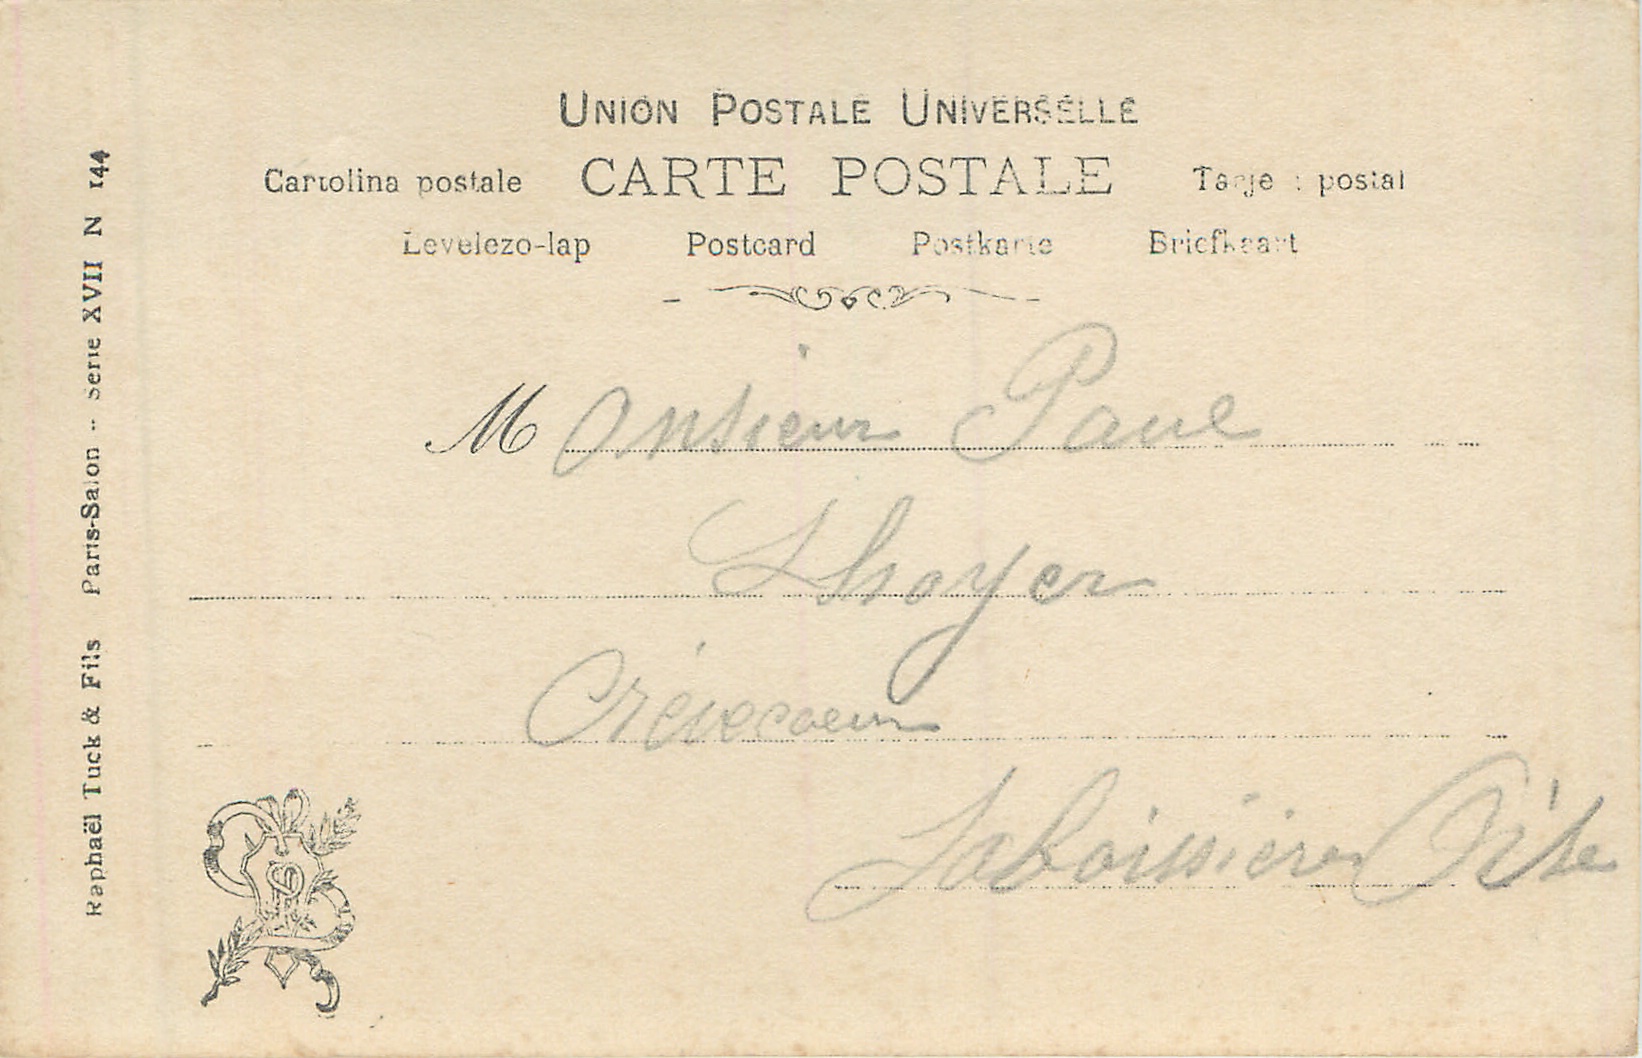 UNION POSTALE UNIVERSELLE
Cartolina postale CARTE POSTALE Tarje : postal
Levelezo-lap Postcard Postkarte Briefkaart
Monsieur Paul
Lhoyer
Crèvecoeur
Laboissière Oise
Raphaël Tuck & Fils Paris-Salon -- Serie XVII N 144